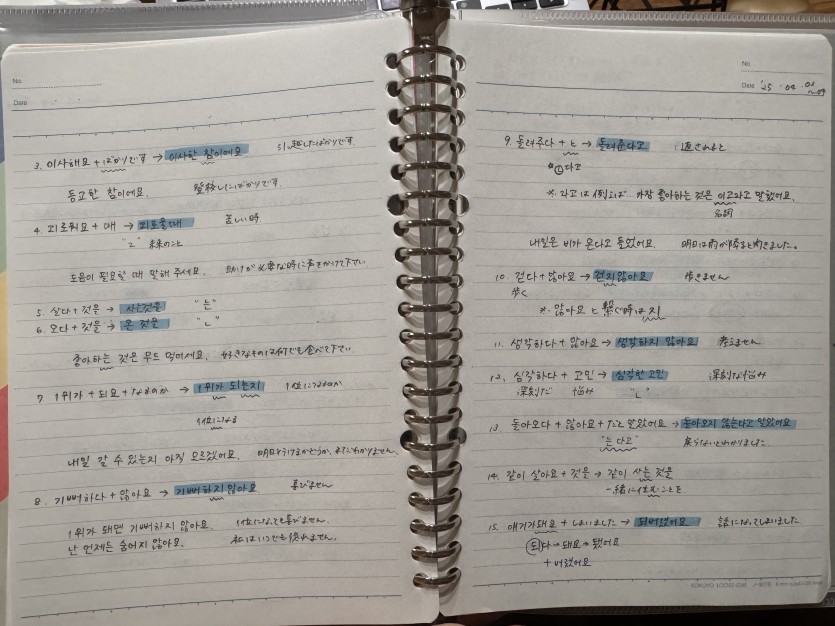 No.
Date
3. 이사해요 + ばかりです → 이사한 참이에요 引越したばかりです
등교한 참이에요. 登校したばかりです.
4. 괴로워요 + 때 → 괴로울때 苦しい時
"ㄹ" 未来のこと
도움이 필요할 때 말해 주세요. 助けが必要な時に声をかけて下さい
5. 살다 + 것을 → 사는것을 "는"
6. 오다 + 것을 → 온 것을 "ㄴ"
좋아하는 것은 무드 먹어세요. 好きなものは何でも食べて下さい
7 1위가 + 되요 + なるのか → 1위가 되는지 1位になるのか
1位になる
내일 갈 수 있는지 아직 모르겠어요. 明日行けるかどうか、まだわかりません.
8. 기뻐하다 + 않아요 → 기뻐하지 않아요 喜びません
1위가 돼면 기뻐하지 않아요. 1位になっても喜びません.
난 언제든 숨어지 않아요. 私はいつでも隠れません.
No.
Date '25 . 04 .
9. 돌려주다 + と → 돌려준다고 返されると
다고
※. 라고は 例えば 가장 좋아하는 것은 이고라고 말했어요.
名詞
내일은 비가 온다고 들었어요. 明日は雨が降ると聞きました。
10. 걷다 + 않아요 → 걷지 않아요 歩きません
歩く
※. 않아요 と 繋ぐ時は 지
11. 생각하다 + 않아요 → 생각하지 않아요 考えません
12. 심각하다 + 고민 → 심각한 고민 深刻な悩み
深刻だ 悩み "ㄴ"
13. 돌아오다 + 않아요 + だと 알았어요 → 돌아오지 않는다고 알았어요
"는다고" 戻らないとわかりました
14. 같이 살아요 + 것을 → 같이 사는 것을
一緒に住むことを
15. 얘기가돼요 + しまいました → 돼버렸어요 話になってしまいました
되다 → 돼요 → 됐어요
+ 버렸어요